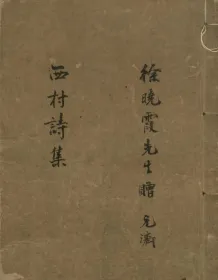 徐曉霞先生贈 元濟
西村詩集